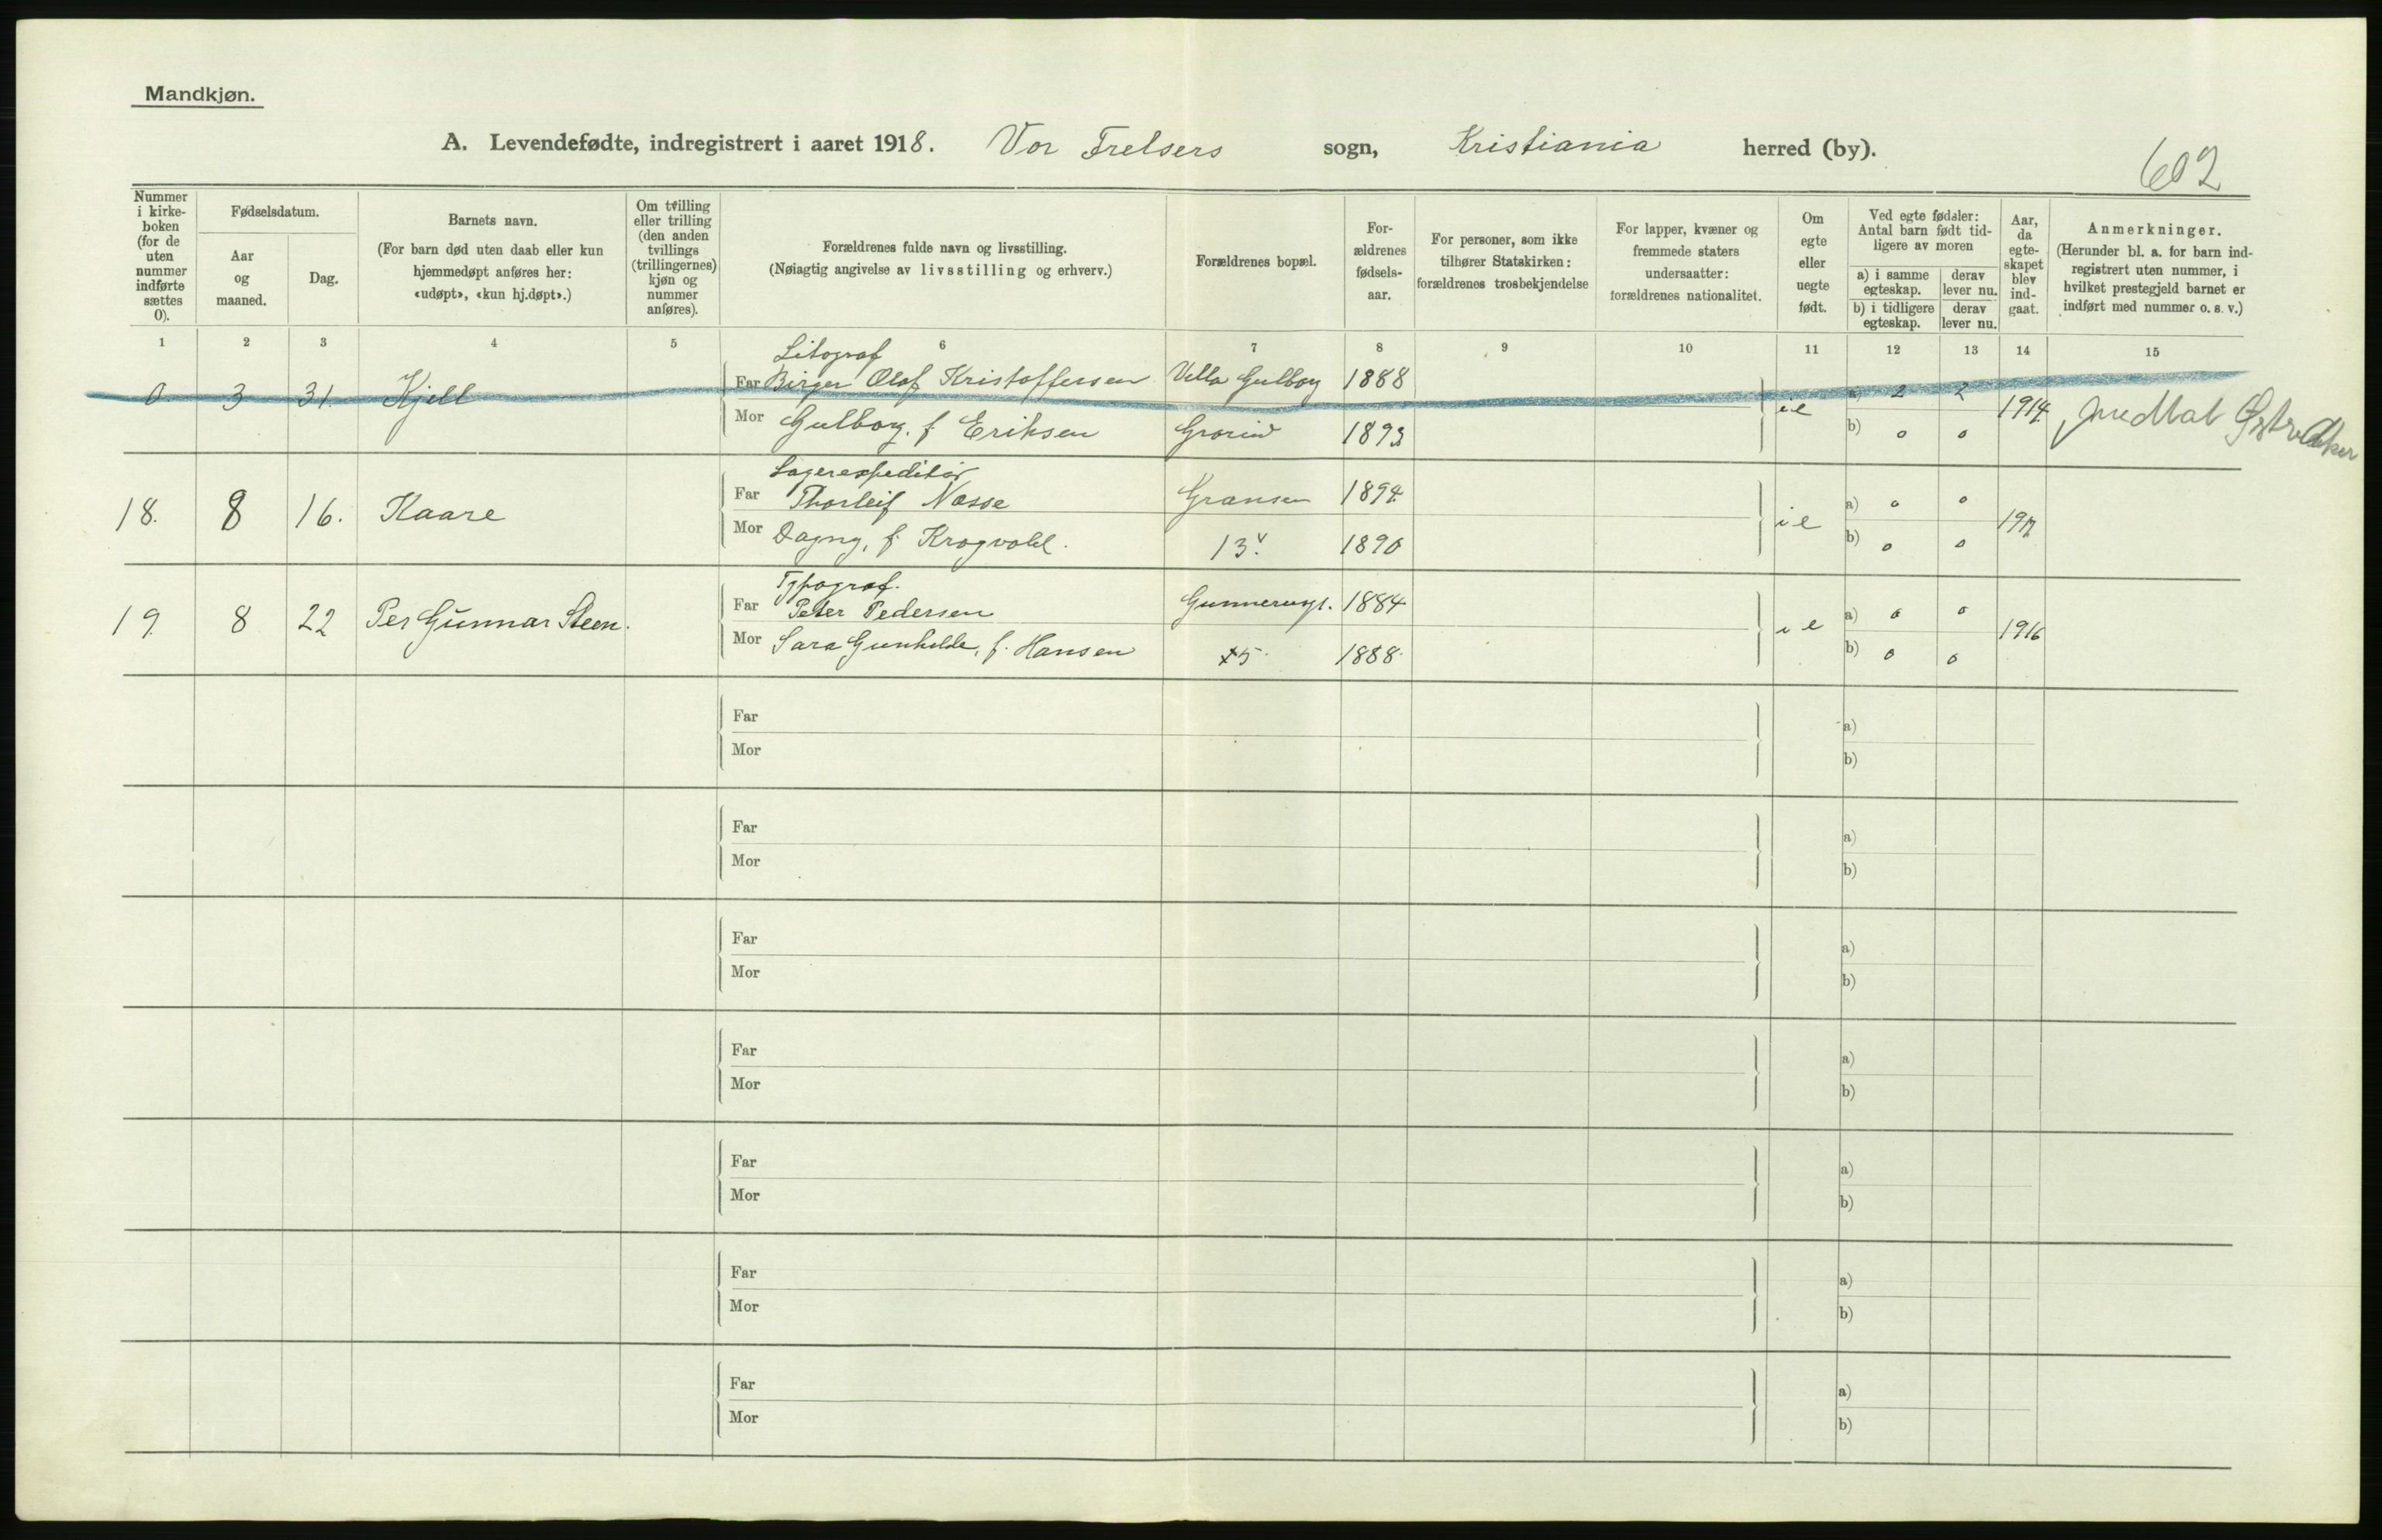 Mandkjøn.
A. Levendefødte, indregistrert i aaret 1918. Vor Frelsers sogn, Kristiania herred (by).
602
Nummer i kirke-boken (for de uten nummer indførte sættes 0).
Fødselsdatum.
Aar og maaned.
Dag.
Barnets navn.
(For barn død uten daab eller kun hjemmedøpt anføres her: «udøpt», «kun hj.døpt».)
Om tvilling eller trilling (den anden tvillings (trillingernes) kjøn og nummer anføres).
Forældrenes fulde navn og livsstilling.
(Nøiagtig angivelse av livsstilling og erhverv.)
Forældrenes bopæl.
For-ældrenes fødsels-aar.
For personer, som ikke tilhører Statskirken: forældrenes trosbekjendelse
For lapper, kvæner og fremmede staters undersaatter: forældrenes nationalitet.
Om egte eller uegte født.
Ved egte fødsler: Antal barn født tid-ligere av moren
a) i samme egteskap.
derav lever nu.
b) i tidligere egteskap.
derav lever nu.
Aar, da egte-skapet blev ind-gaat.
Anmerkninger.
(Herunder bl. a. for barn ind-registrert uten nummer, i hvilket prestegjeld barnet er indført med nummer o. s. v.)
1 2 3 4 5 6 7 8 9 10 11 12 13 14 15
Litograf
0 3 31. Kjell Far Birger Olaf Kristoffersen Villa Gulborg 1888 a) 2 2
Mor Gulborg, f. Eriksen Grorud 1893 i e b) 0 0 1914 Østre Aker
Lagerexpeditør
18. 8 16. Kaare Far Thorleif Nasse Gransen 1894 a) 0 0
Mor Dagny, f. Krogvold. 13V 1890 i e b) 0 0
Typograf.
19. 8 22 Per Gunnar Steen. Far Peter Pedersen Gunnerusgt. 1884 a) 0 0
Mor Sara Gunhilde, f. Hansen 1888. i e b) 0 0 1916
Far a)
Mor b)
Far a)
Mor b)
Far a)
Mor b)
Far a)
Mor b)
Far a)
Mor b)
Far a)
Mor b)
Far a)
Mor b)